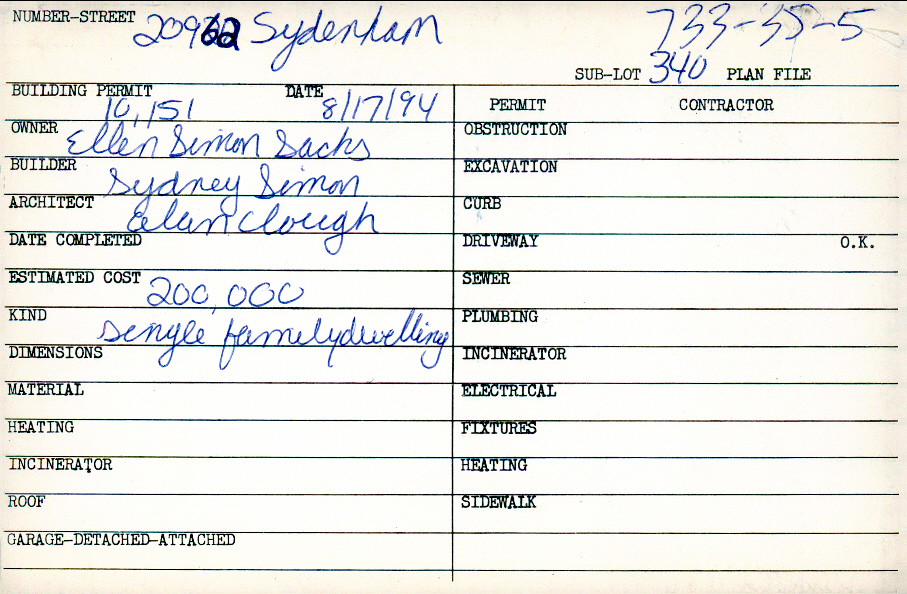 NUMBER-STREET 20962 Sydenham 733-35-5
SUB-LOT 340 PLAN FILE
BUILDING PERMIT 10,151 DATE 8/17/94
PERMIT CONTRACTOR
OWNER Ellen Simon Sachs
OBSTRUCTION
BUILDER Sydney Simon
EXCAVATION
ARCHITECT Alan Clough
CURB
DATE COMPLETED
DRIVEWAY O.K.
ESTIMATED COST 200,000
SEWER
KIND single family dwelling
PLUMBING
DIMENSIONS
INCINERATOR
MATERIAL
ELECTRICAL
HEATING
FIXTURES
INCINERATOR
HEATING
ROOF
SIDEWALK
GARAGE-DETACHED-ATTACHED